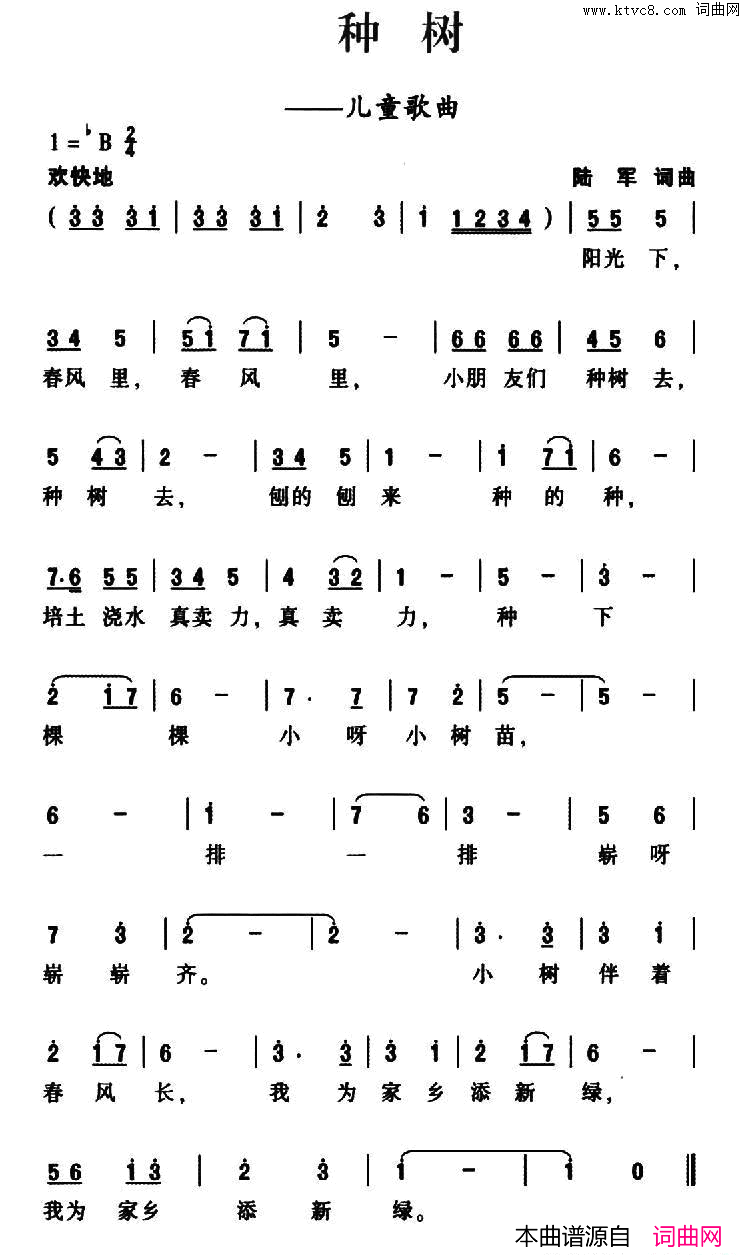 www.ktvc8.com 词曲网
种 树
——儿童歌曲
1=♭B 2/4
欢快地 陆 军 词曲
( 3̇3̇ 3̇1̇ | 3̇3̇ 3̇1̇ | 2̇ 3̇ | 1̇ 1234 ) | 55 5 |
阳光 下，
34 5 | 51̇ 71̇ | 5 - | 66 66 | 45 6 |
春风 里， 春 风 里， 小朋 友们 种树 去，
5 43 | 2 - | 34 5 | 1 - | 1̇ 71̇ | 6 - |
种 树 去， 刨的 刨 来 种 的 种，
7·6 55 | 34 5 | 4 32 | 1 - | 5 - | 3̇ - |
培土 浇水 真卖 力，真 卖 力， 种 下
2̇ 1̇7 | 6 - | 7· 7 | 7 2̇ | 5 - | 5 - |
棵 棵 小 呀 小 树 苗，
6 - | 1̇ - | 7 6 | 3 - | 5 6 |
一 排 一 排 崭 呀
7 3̇ | 2̇ - | 2̇ - | 3̇· 3̇ | 3̇ 1̇ |
崭 崭 齐。 小 树 伴 着
2̇ 1̇7 | 6 - | 3̇· 3̇ | 3̇ 1̇ | 2̇ 1̇7 | 6 - |
春 风 长， 我 为 家 乡 添 新 绿，
56 1̇3̇ | 2̇ 3̇ | 1̇ - | 1̇ 0 ‖
我为 家乡 添 新 绿。
本曲谱源自 词曲网